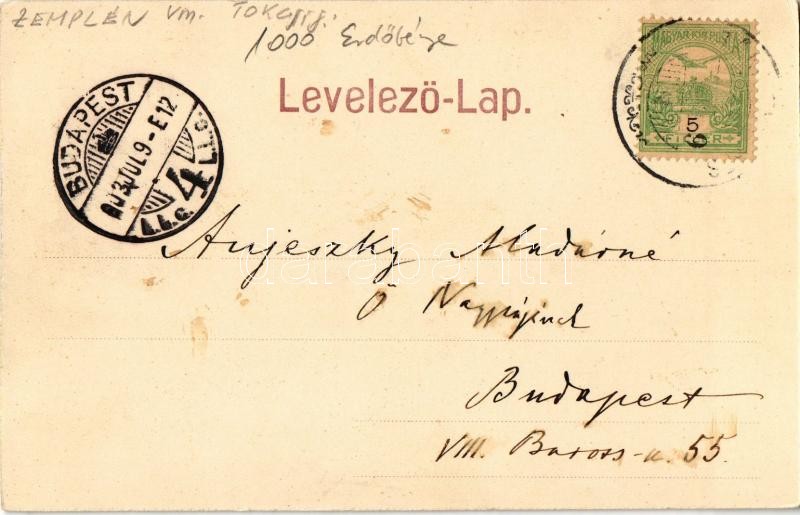 ZEMPLÉN Vm. TOKAJ
1000 Erdőbénye
Levelező-Lap.
BUDAPEST
903 JUL 9-E12
4
MAGYAR KIR. POSTA
5
FILLÉR
Aujeszky Aladárné
Ő Nagyságának
Budapest
VIII. Baross-u. 55.
darabanth